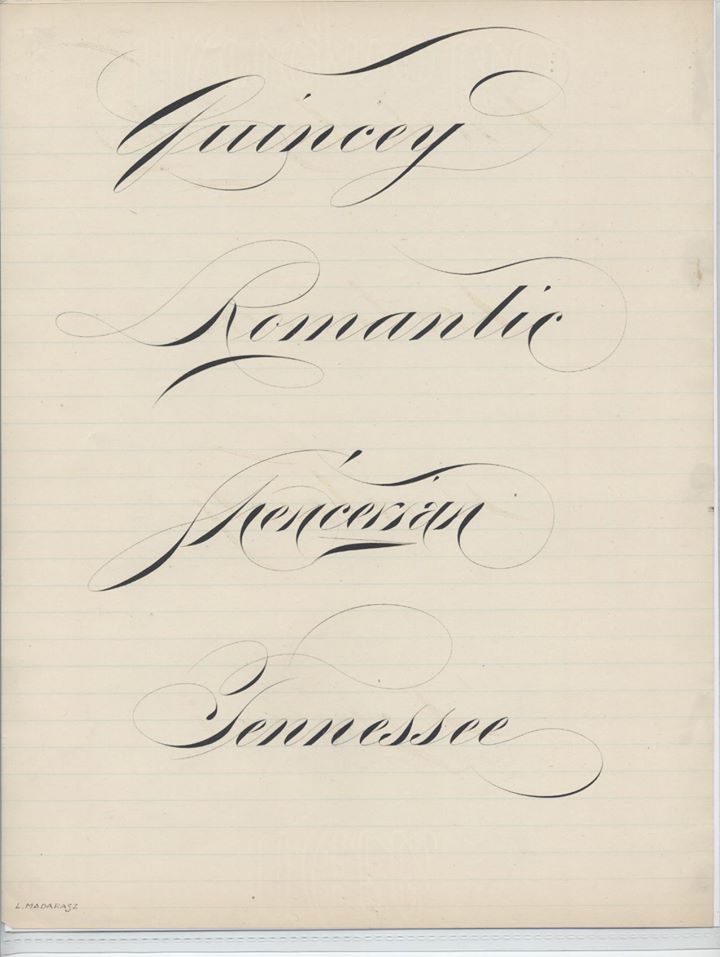 Quincey
Romantic
Spencerian
Tennessee
L. MADARASZ